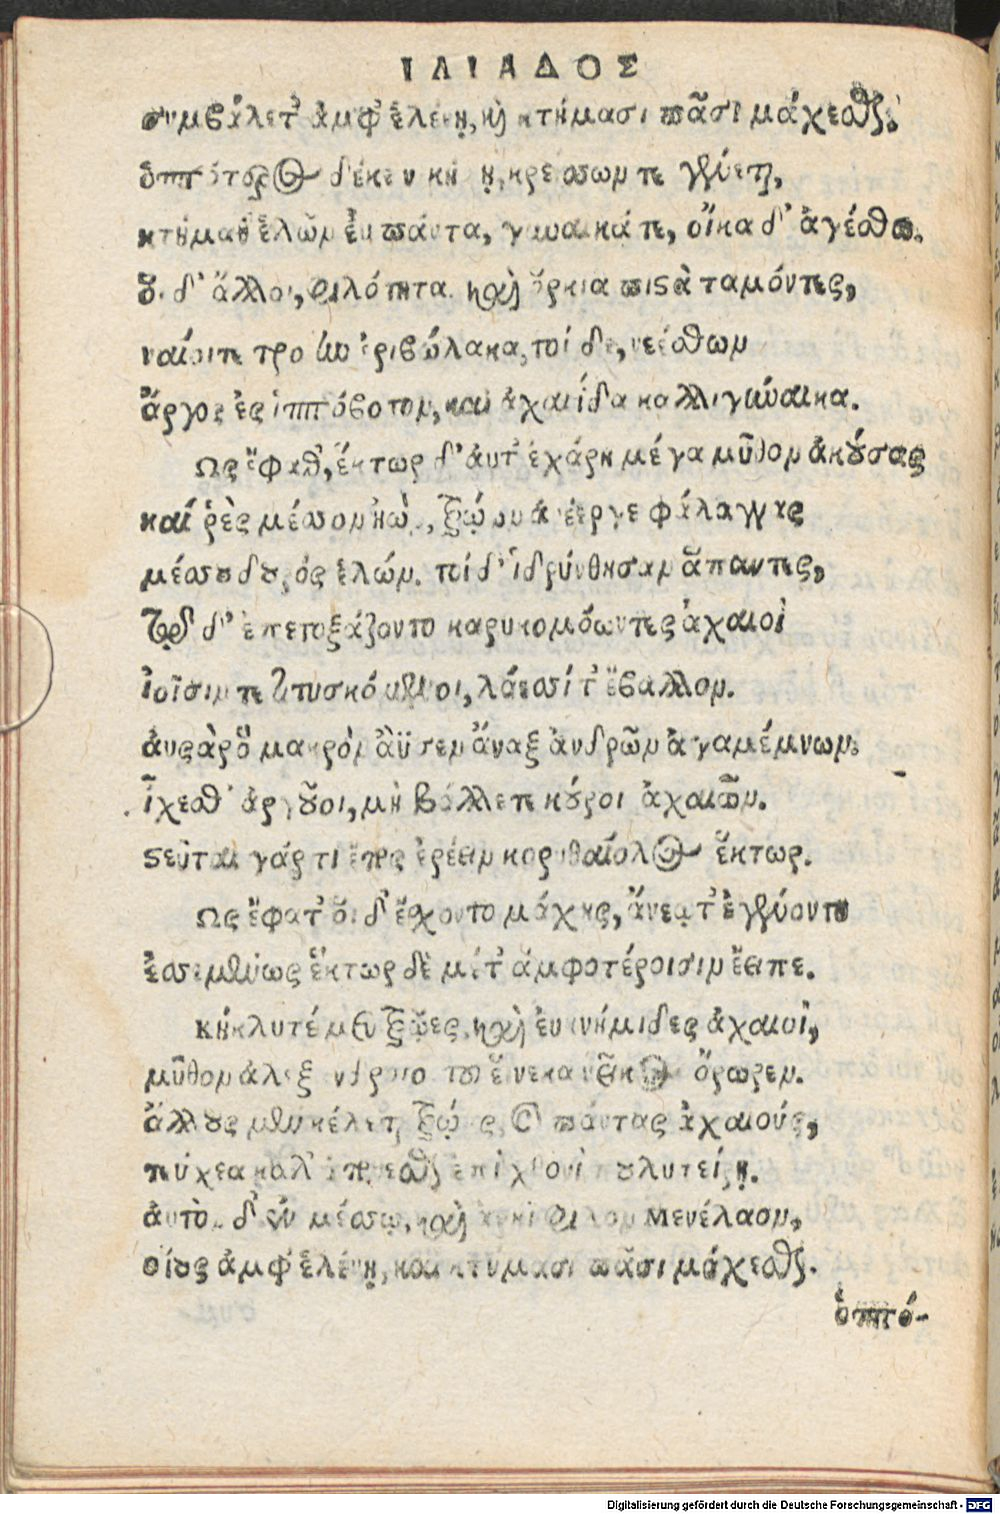 ΙΛΙΑΔΟΣ
συμβάλετ' ἀμφ' ἑλένῃ, καὶ κτήμασι πᾶσι μάχεσθαι.
ὁππότερος δέ κε νικήσῃ, κρείσσων τε γένηται,
κτήμαθ' ἑλὼν εὖ πάντα, γυναῖκά τε, οἴκαδ' ἀγέσθω.
οἱ δ' ἄλλοι, φιλότητα καὶ ὅρκια πιστὰ ταμόντες,
ναίοιτε τροίην ἐριβώλακα, τοὶ δὲ, νεέσθων
ἄργος ἐς ἱππόβοτον, καὶ ἀχαιΐδα καλλιγύναικα.
Ως ἔφαθ', ἕκτωρ δ' αὖτ' ἐχάρη μέγα μῦθον ἀκούσας
καί ῥ' ἐς μέσσον ἰὼν, τρώων ἀνέεργε φάλαγγας
μέσσου δουρὸς ἑλών. τοὶ δ' ἱδρύνθησαν ἅπαντες,
τῷ δ' ἐπετοξάζοντο καρηκομόωντες ἀχαιοὶ
ἰοῖσίν τε τιτυσκόμενοι, λάεσσί τ' ἔβαλλον.
αὐτὰρ ὃ μακρὸν ἄϋσεν ἄναξ ἀνδρῶν ἀγαμέμνων.
ἴσχεσθ' ἀργεῖοι, μὴ βάλλετε κοῦροι ἀχαιῶν.
στεῦται γάρ τι ἔπος ἐρέειν κορυθαίολος ἕκτωρ.
Ως ἔφατ' οἱ δ' ἔσχοντο μάχης, ἄνεῳ τ' ἐγένοντο
ἐσσυμένως ἕκτωρ δὲ μετ' ἀμφοτέροισιν ἔειπε.
Κέκλυτέ μευ τρῶες, καὶ ἐϋκνήμιδες ἀχαιοὶ,
μῦθον ἀλεξάνδροιο τοῦ εἵνεκα νεῖκος ὄρωρεν.
ἄλλους μὲν κέλεται τρῶας, καὶ πάντας ἀχαιούς,
τεύχεα κάλ' ἀποθέσθαι ἐπὶ χθονὶ πουλυβοτείρῃ.
αὐτὸν δ' ἐν μέσσῳ, καὶ ἀρηΐφιλον Μενέλαον,
οἴους ἀμφ' ἑλένῃ, καὶ κτήμασι πᾶσι μάχεσθαι.
ὁππό-
Digitalisierung gefördert durch die Deutsche Forschungsgemeinschaft - DFG